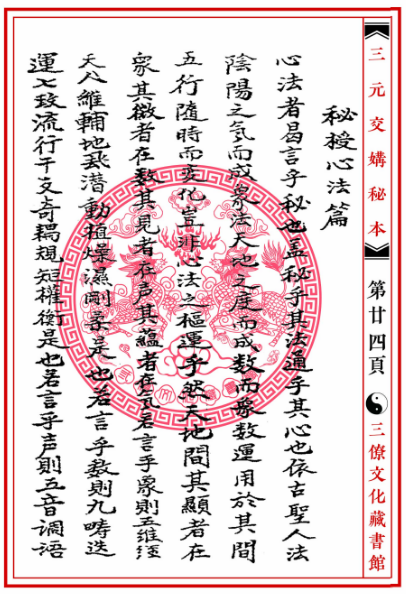 三元交媾秘本
第廿四頁
三僚文化藏書館
秘授心法篇
心法者曷言乎秘也盖秘乎其法通乎其心也依古聖人法
陰陽之氣而成象法天地之度而成数而象数運用於其間
五行隨時而变化豈非心法之樞運乎然天地間其顯者在
象其徵者在数其見者在声其蘊者在氣若言乎象則五維经
天八維輔地飛潜動植燥濕剛柔是也若言乎数則九疇迭
運七政流行干支奇耦規矩權衡是也若言乎声則五音调语